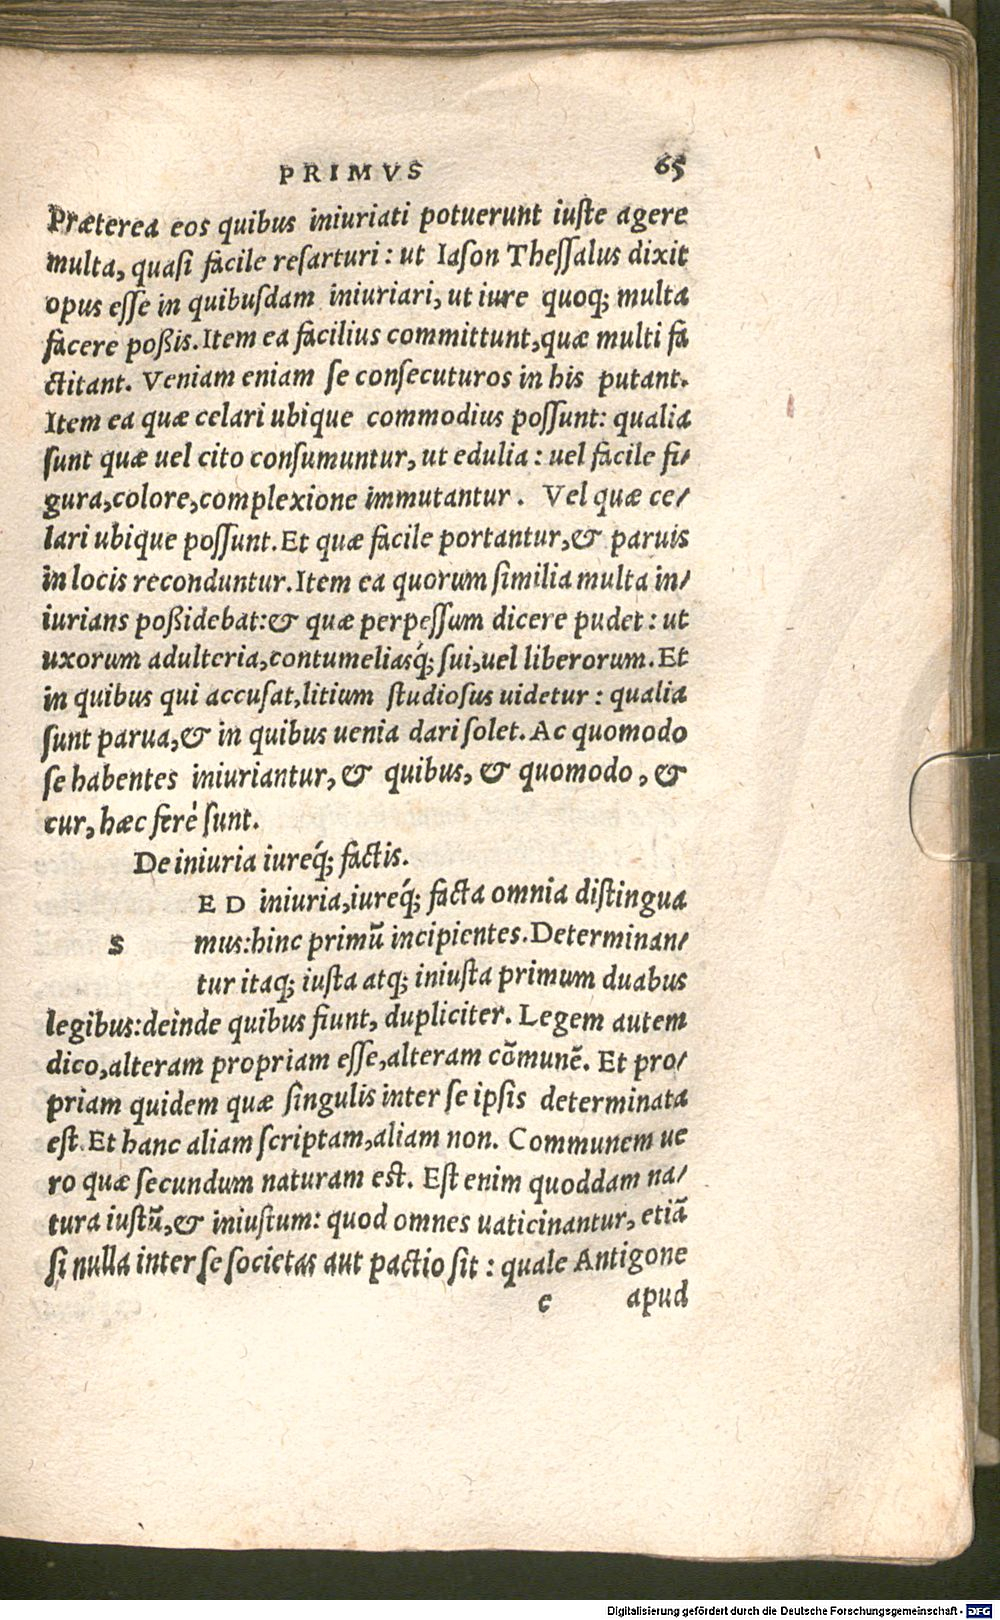 PRIMVS 65
Præterea eos quibus iniuriati potuerunt iuste agere
multa, quasi facile resarturi: ut Iason Thessalus dixit
opus esse in quibusdam iniuriari, ut iure quoq; multa
facere poßis. Item ea facilius committunt, quæ multi fa
ctitant. Veniam eniam se consecuturos in his putant.
Item ea quæ celari ubique commodius possunt: qualia
sunt quæ uel cito consumuntur, ut edulia: uel facile fi/
gura, colore, complexione immutantur. Vel quæ ce/
lari ubique possunt. Et quæ facile portantur, & paruis
in locis reconduntur. Item ea quorum similia multa in/
iurians poßidebat: & quæ perpessum dicere pudet: ut
uxorum adulteria, contumeliasq́; sui, uel liberorum. Et
in quibus qui accusat, litium studiosus uidetur: qualia
sunt parua, & in quibus uenia dari solet. Ac quomodo
se habentes iniuriantur, & quibus, & quomodo, &
cur, hæc feré sunt.
De iniuria iureq́; factis.
S ED iniuria, iureq́; facta omnia distingua
mus: hinc primū incipientes. Determinan/
tur itaq; iusta atq; iniusta primum duabus
legibus: deinde quibus fiunt, dupliciter. Legem autem
dico, alteram propriam esse, alteram cōmunē. Et pro/
priam quidem quæ singulis inter se ipsis determinata
est. Et hanc aliam scriptam, aliam non. Communem ue
ro quæ secundum naturam est. Est enim quoddam na/
tura iustū, & iniustum: quod omnes uaticinantur, etiā
si nulla inter se societas aut pactio sit: quale Antigone
c apud
Digitalisierung gefördert durch die Deutsche Forschungsgemeinschaft - DFG